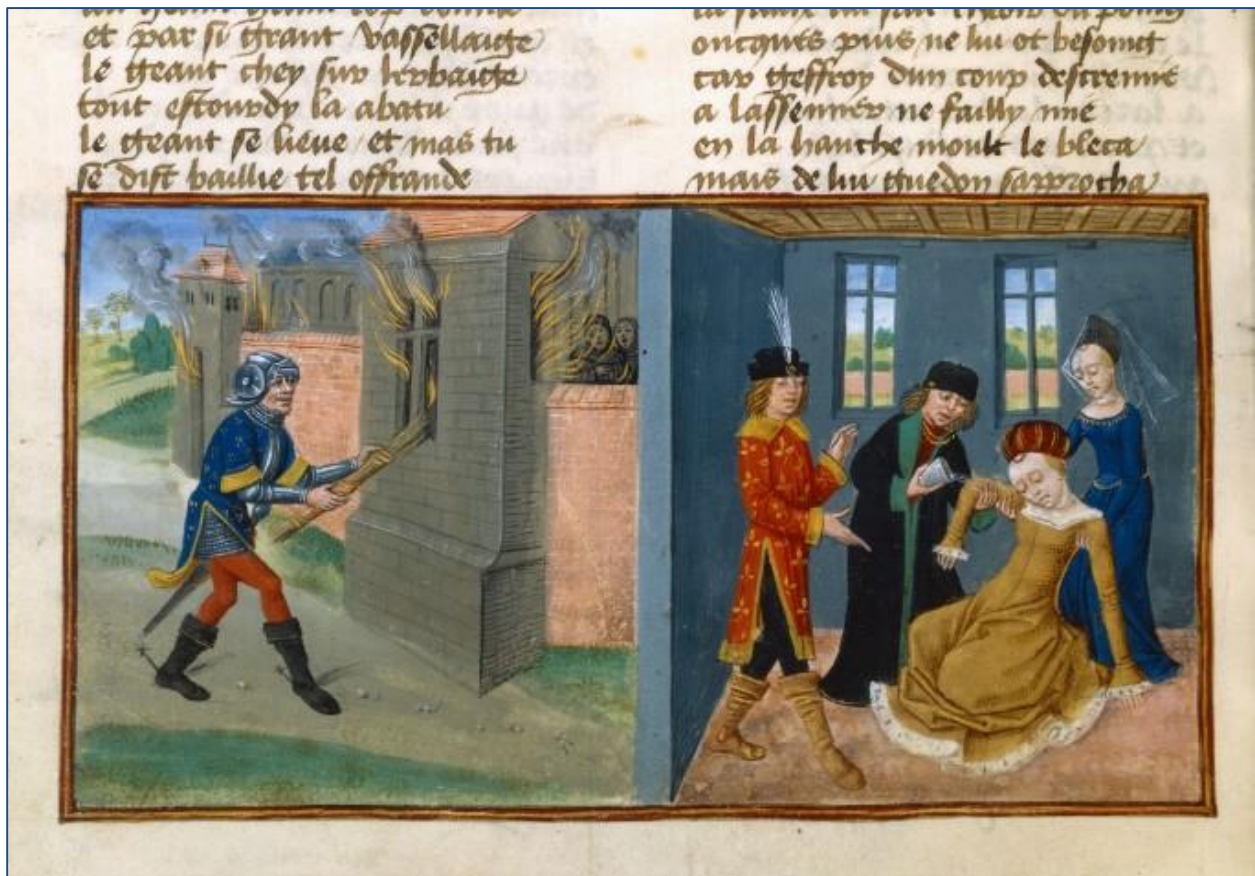 geant grant cop donne
et par si grant vassellaige
le geant chey sur lerbaige
tout estourdy la abatu
le geant se lieue et mas tu
se dist baillie tel offrande
la faulx lui fist cheoir du poing
oncques puis ne lui ot besoing
car geffroy dun coup descremie
a lassenner ne failly mie
en la hanche moult le bleca
mais de lui guedon sapprocha